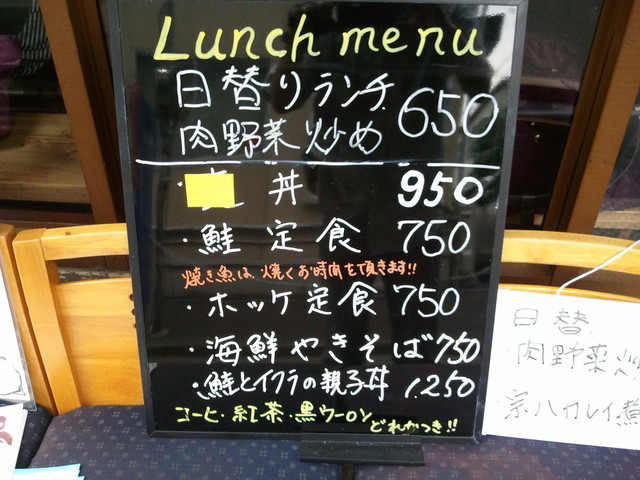 Lunch menu
日替りランチ 650
肉野菜炒め
丼 950
・鮭定食 750
焼き魚は、焼くお時間を頂きます!!
・ホッケ定食 750
・海鮮やきそば 750
・鮭とイクラの親子丼 1,250
コーヒ・紅茶・黒ウーロン
どれかつき!!
日替
・肉野菜炒
・宗ハカレイ煮